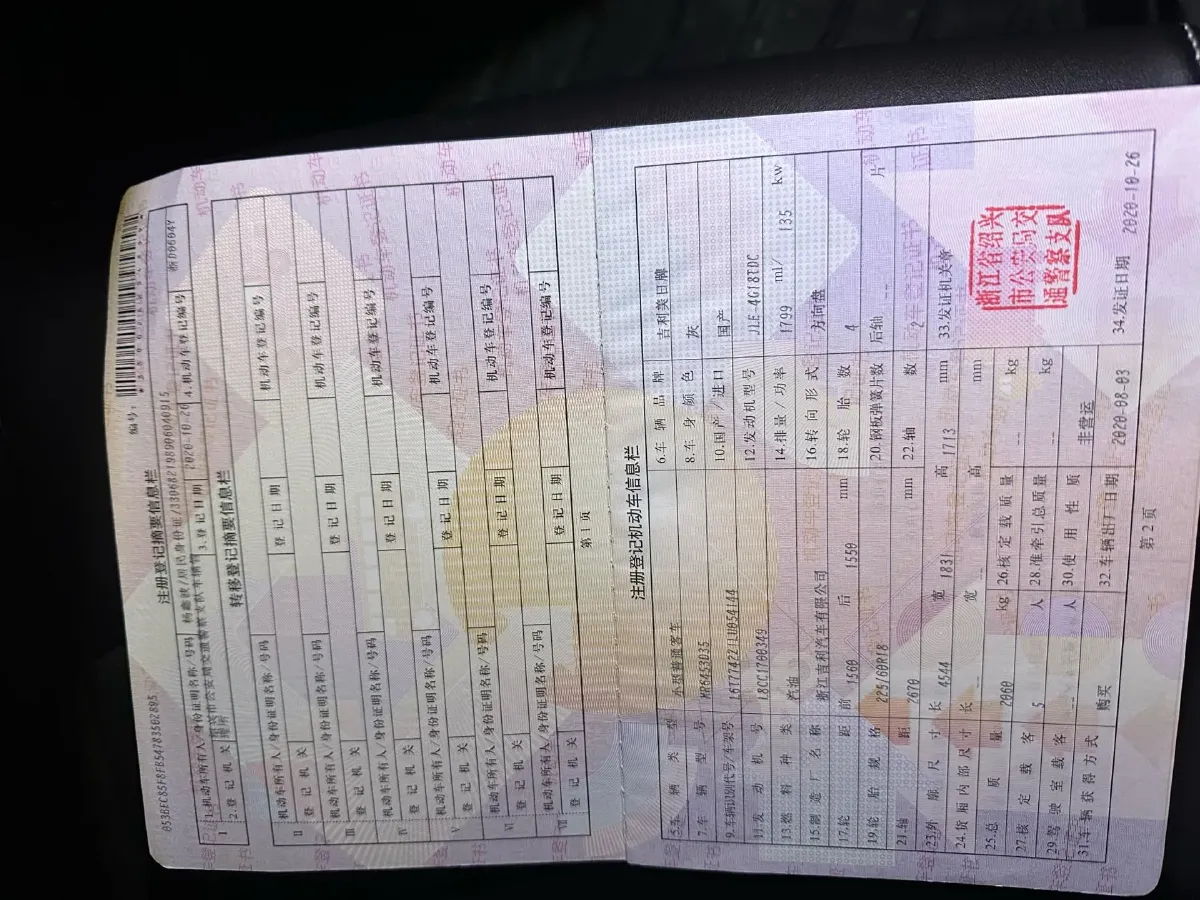 编号:
0536EC85F8FB54783502895
注册登记摘要信息栏
1.机动车所有人/身份证明名称/号码 杨鑫波/居民身份证/330682198906040915
2.登记机关 3.登记日期 2020-10-26 4.机动车登记编号 浙D0604Y
转移登记摘要信息栏
II 机动车所有人/身份证明名称/号码
登记机关 登记日期 机动车登记编号
III 机动车所有人/身份证明名称/号码
登记机关 登记日期 机动车登记编号
IV 机动车所有人/身份证明名称/号码
登记机关 登记日期 机动车登记编号
V 机动车所有人/身份证明名称/号码
登记机关 登记日期 机动车登记编号
VI 机动车所有人/身份证明名称/号码
登记机关 登记日期 机动车登记编号
VII 机动车所有人/身份证明名称/号码
登记机关 登记日期 机动车登记编号
第1页
注册登记机动车信息栏
5.车辆类型 小型普通客车 6.车辆品牌 吉利美日牌
7.车辆型号 MR6453D35 8.车身颜色 灰
9.车辆识别代号/车架号 L6T7742Z1LU054144 10.国产/进口 国产
11.发动机号 L8CC1700349 12.发动机型号 JLE-4G18TDC
13.燃料种类 汽油 14.排量/功率 1799 ml/ 135 kw
15.制造厂名称 浙江吉利汽车有限公司 16.转向形式 方向盘
17.轮距 前 1560 后 1550 mm 18.轮胎数 4
19.轮胎规格 225/60R18 20.钢板弹簧片数 后轴 -- 片
21.轴距 2670 mm 22.轴数 2
23.外廓尺寸 长 4544 宽 1831 高 1713 mm 33.发证机关章
24.货厢内部尺寸 长 -- 宽 -- 高 -- mm
25.总质量 2060 kg 26.核定载质量 -- kg
27.核定载客 5 人 28.准牵引总质量 -- kg
29.驾驶室载客 -- 人 30.使用性质 非营运
31.车辆获得方式 购买 32.车辆出厂日期 2020-08-03 34.发证日期 2020-10-26
浙江省绍兴
市公安局交
通警察支队
第2页